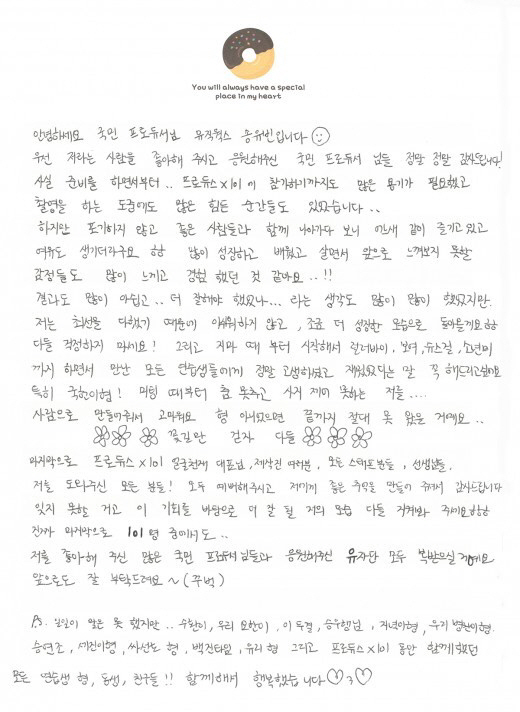 You will always have a special
place in my heart
안녕하세요 국민 프로듀서님 뮤직웍스 송유빈입니다
우선 저라는 사람을 좋아해 주시고 응원해주신 국민 프로듀서 님들 정말 정말 감사드립니다!
사실 준비를 하면서부터.. 프로듀스X101에 참가하기까지도 많은 용기가 필요했고
촬영을 하는 도중에도 많은 힘든 순간들도 있었습니다..
하지만 포기하지 않고 좋은 사람들과 함께 나아가다 보니 어느새 같이 즐기고 있고
여유도 생기더라구요 ㅎㅎ 많이 성장하고 배웠고 살면서 앞으로 느껴보지 못할
감정들도 많이 느끼고 경험 했던 것 같아요..!!
결과도 많이 아쉽고.. 더 잘해야 했었나... 라는 생각도 많이 많이 했었지만.
저는 최선을 다했기 때문에 아쉬워하지 않고, 조금 더 성장한 모습으로 돌아올게요ㅎㅎ
다들 걱정하지 마세요! 그리고 지마 때 부터 시작해서 럴러바이, 보더, 뉴스길, 소년미
까지 하면서 만난 모든 연습생들에게 정말 고생하셨고 재밌었다는 말 꼭 해드리고싶어요
특히 국헌이형! 미팅 때부터 춤 못추고 사지 제어 못하는 저를....
사람으로 만들어줘서 고마워요 형 아니었으면 끝까지 절대 못 왔을 거예요..
꽃길만 걷자 다들
마지막으로 프로듀스X101 얼굴천재 대표님, 제작진 여러분, 모든 스태프분들, 선생님들,
저를 도와주신 모든 분들! 모두 예뻐해주시고 저에게 좋은 추억을 만들어 주셔서 감사드립니다
잊지 못할 거고 이 기회를 바탕으로 더 잘 될 저의 모습 다들 지켜봐 주세요ㅎㅎㅎ
진짜 마지막으로 101명 중에서도..
저를 좋아해 주신 많은 국민 프로듀서님들과 응원해주신 유자단 모두 복받으실거예요
앞으로도 잘 부탁드려요~(꾸벅)
P.S. 일일이 말은 못 했지만.. 수환이, 우리 요한이, 이 독결, 승우형님, 저녁이형, 우리 병찬이형.
승연조, 세진이형, 싸선든 형, 백진타임, 유리 형 그리고 프로듀스X101 동안 함께했던
모든 연습생 형, 동생, 친구들!! 함께해서 행복했습니다♡3♡